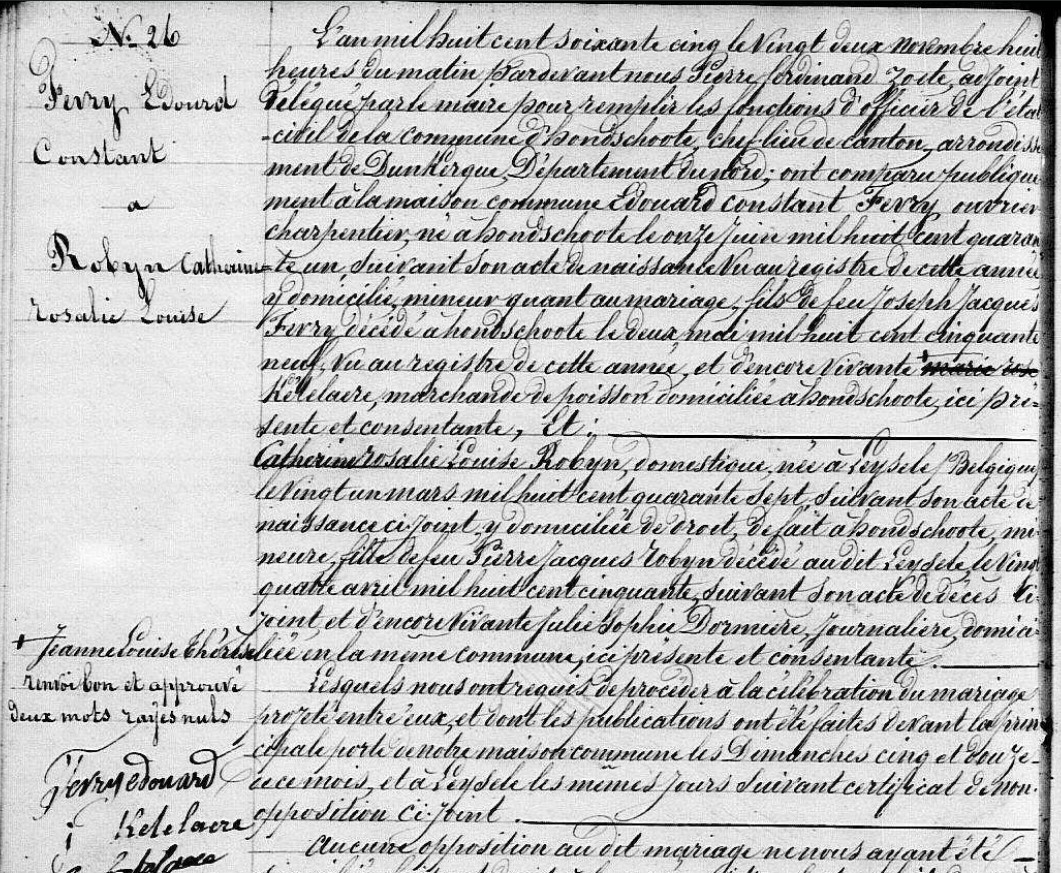 N. 26
Fevry Edouard
Constant
a
Robyn Catherine
rosalie Louise
L'an mil huit cent soixante cinq le Vingt deux novembre huit
heures du matin pardevant nous Pierre ferdinand Zoete, adjoint
délégué par le maire pour remplir les fonctions d'officier de l'état
-civil de la commune d'hondschoote, chef-lieu de canton, arrondisse
ment de Dunkerque, Département du nord; ont comparu publique
ment à la maison commune Edouard constant Fevry ouvrier
charpentier, né à hondschoote le onze juin mil huit cent quaran
-te un, suivant son acte de naissance Vu au registre de cette année
y domicilié, mineur quant au mariage, fils de feu Joseph Jacques
Fevry décédé à hondschoote le deux mai mil huit cent cinquante
neuf, Vu au registre de cette année, et d'encore Vivante + marie
Ketelaere, marchande de poisson domiciliée à hondschoote, ici pré=
sente et consentante, Et :
Catherine rosalie Louise Robyn, domestique, née à Leysele (Belgique)
le Vingt un mars mil huit cent quarante Sept, suivant son acte de
naissance ci-joint, y domiciliée de droit, de fait à hondschoote, mi
neure, fille de feu Pierre Jacques robyn décédé au dit Leysele, le Vingt
quatre avril mil huit cent cinquante, suivant son acte de décès ci-
joint et d'encore Vivante Julie Sophie Dormière, Journalière, domici
liée en la même commune, ici présente et consentante.
Lesquels nous ont requis de procéder à la célébration du mariage
projeté entre eux, et dont les publications ont été faites devant la prin
cipale porte de notre maison commune les Demanches cinq et douze
de ce mois, et à Leysele les mêmes Jours Suivant certificat de non-
opposition ci-joint.
Aucune opposition au dit mariage ne nous ayant été
+ Jeanne Louise Thérèse
renvoi bon et approuvé
deux mots rayés nuls
Fevry edouard
Ketelaere